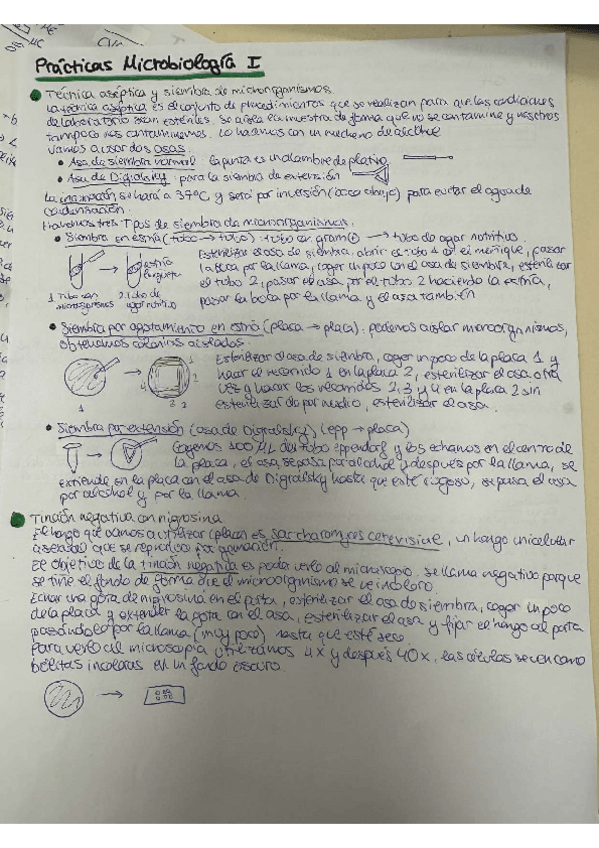 Prácticas Microbiología I
Técnica aséptica y siembra de microorganismos.
La técnica aséptica es el conjunto de procedimientos que se realizan para que las condiciones
de laboratorio sean estériles. Se aísla la muestra de forma que no se contamine y nosotros
tampoco nos contaminemos. Lo hacemos con un mechero de alcohol
Vamos a usar dos asas:
• Asa de siembra normal: la punta es un alambre de platino
• Asa de Digralsky: para la siembra de extensión
La incubación se hará a 37ºC y será por inversión (boca abajo) para evitar el agua de
condensación.
Haremos tres tipos de siembra de microorganismos.
• Siembra en estría (tubo → tubo): tubo de gram → tubo de agar nutritivo.
Esterilizar el asa de siembra, abrir el tubo 1 con el meñique, pasar
la boca por la llama, coger un poco con el asa de siembra, esterilizar
el tubo 2, pasar el asa por el tubo 2 haciendo la estría,
pasar la boca por la llama y el asa también
estría
1. Tubo con microorganismos
2. Tubo de agar nutritivo
• Siembra por agotamiento en estría (placa → placa): podemos aislar microorganismos,
obtenemos colonias aisladas.
Esterilizar el asa de siembra, coger un poco de la placa 1 y
hacer el recorrido 1 en la placa 2, esterilizar el asa otra
vez y hacer los recorridos 2, 3, y 4 en la placa 2 sin
esterilizar de por medio, esterilizar el asa.
1
1
2
3
2
• Siembra por extensión (asa de Digralsky) (epp → placa)
Cogemos 100 µL del tubo eppendorf y los echamos en el centro de
la placa, el asa se pasa por alcohol y después por la llama, se
extiende en la placa con el asa de Digralsky hasta que esté rugoso, se pasa el asa
por alcohol y por la llama.
Tinción negativa con nigrosina
El hongo que vamos a utilizar (placa) es Saccharomyces cerevisiae, un hongo unicelular
asexual que se reproduce por gemación.
El objetivo de la tinción negativa es poder verlo al microscopio. Se llama negativo porque
se tiñe el fondo de forma que el microorganismo se ve incoloro
Echar una gota de nigrosina en el porta, esterilizar el asa de siembra, coger un poco
de la placa y extender la gota con el asa, esterilizar el asa y fijar el hongo al porta
pasándolo por la llama (muy poco) hasta que esté seco.
Para verlo al microscopio utilizamos 4x y después 40x, las células se ven como
bolitas incoloras en un fondo oscuro.